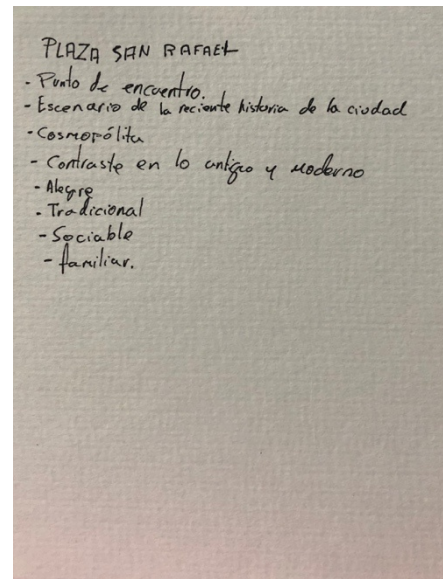 PLAZA SAN RAFAEL
- Punto de encuentro.
- Escenario de la reciente historia de la ciudad
- Cosmopólita
- Contraste en lo antiguo y moderno
- Alegre
- Tradicional
- Sociable
- familiar.